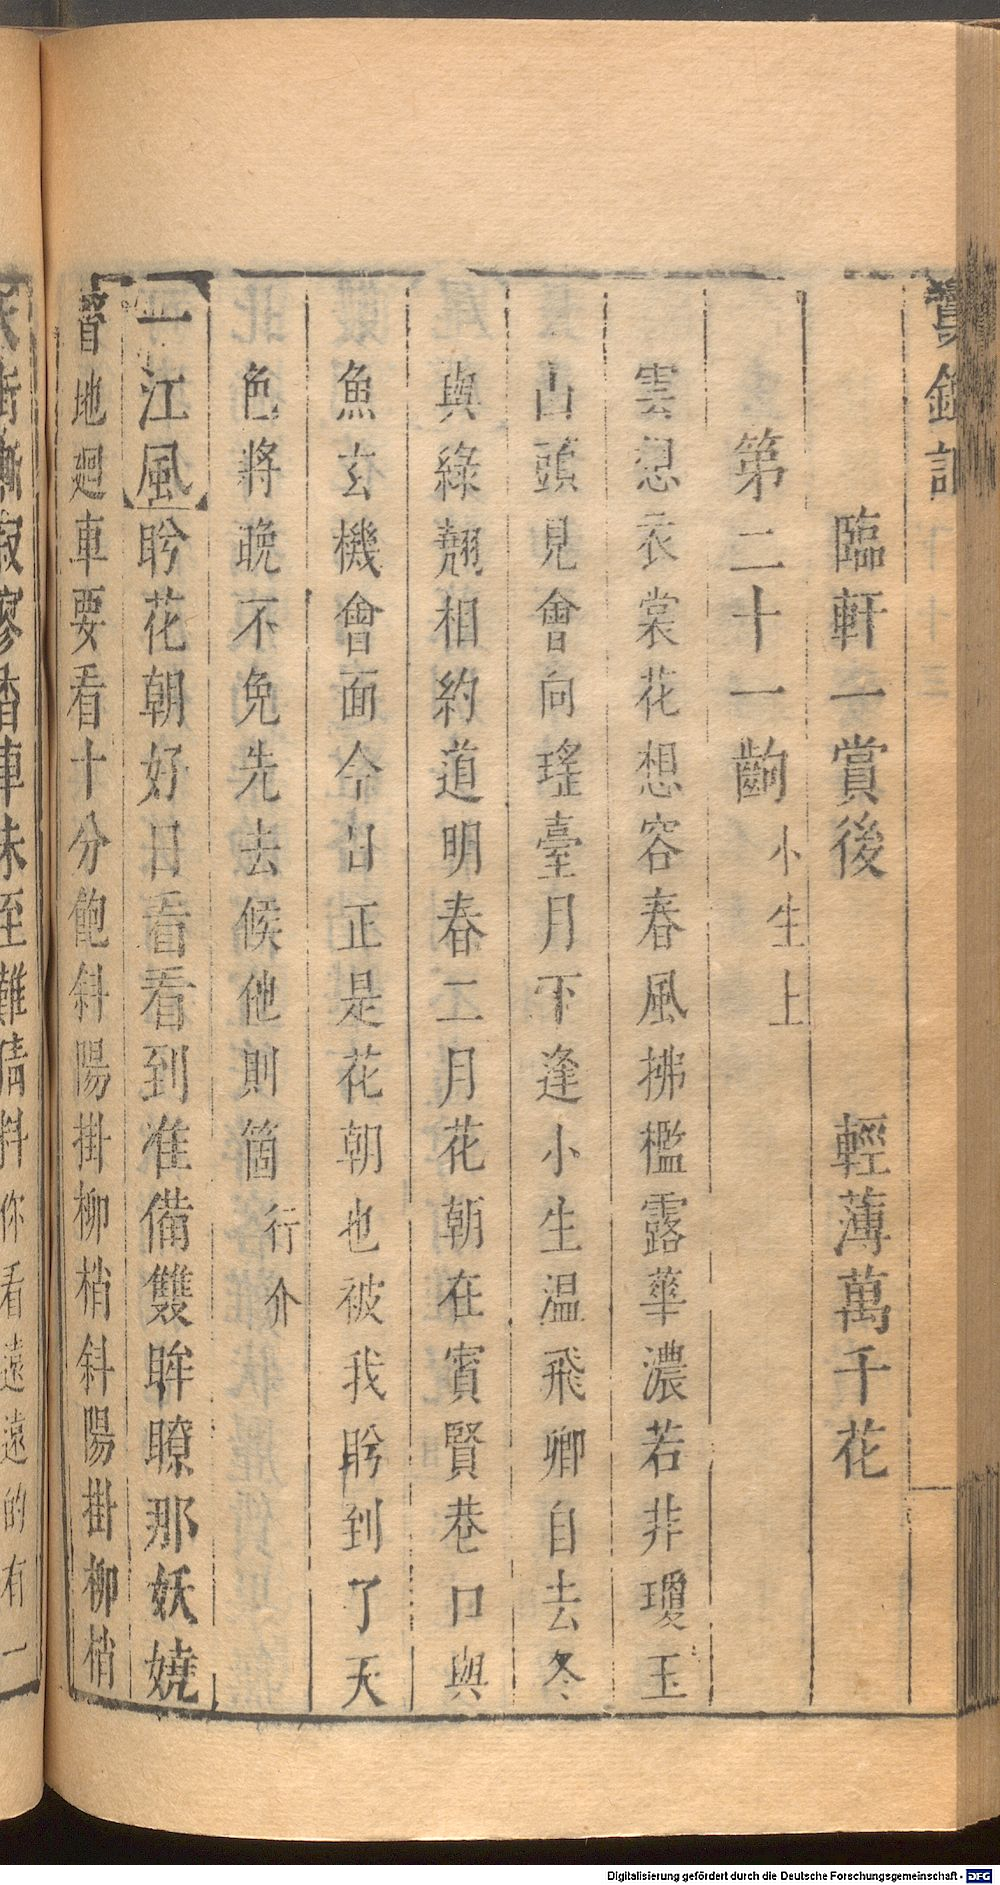 臨軒一賞後　輕薄萬千花
第二十一齣 小生上
雲想衣裳花想容春風拂檻露華濃若非瓊玉
山頭見會向瑤臺月下逢小生温飛卿自去冬
與綠翹相約道明春二月花朝在賓賢巷口與
魚玄機會面今日正是花朝也被我盻到了天
色將晚不免先去候他則箇 行介
一江風 盻花朝好日看看到准備雙眸瞭那妖嬈
暫地廻車要看十分飽斜陽掛柳梢斜陽掛柳梢
寂寥香車未至難猜料你看遠遠的有一
Digitalisierung gefördert durch die Deutsche Forschungsgemeinschaft - DFG